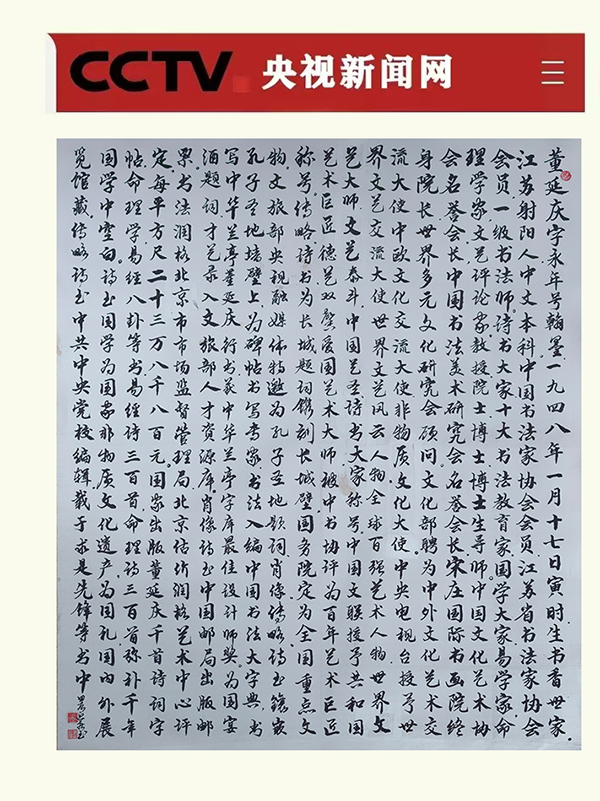 CCTV 央视新闻网
董延庆字永年号翰墨一九四八年一月十七日寅时生书香世家
江苏射阳人中文本科中国书法家协会会员江苏省书法家协会
会员一级书法师诗书大家十大书法教育家国学大家易学家命
理学家文艺评论家教授院士博士博士生导师中国文化艺术协
会名誉会长中国书法美术研究会名誉会长宋庄国际书画院终
身院长世界多元文化研究会顾问文化部聘为中外文化艺术交
流大使中欧文化交流大使非物质文化大使中央电视台授予世
界文艺交流大使世界文艺风云人物全球百强艺术人物世界文
艺大师文艺泰斗中国艺圣诗书大家称号中国文联授予共和国
艺术巨匠德艺双馨爱国艺术大师被中书协评为百年艺术巨匠
称号传略诗书为长城题词镌刻长城壁国务院定为全国重点文
物文旅部央视融媒体特邀为孔子圣地题词肖像传略诗书镶嵌
孔子圣地墙壁上为碑帖书写考家书法入编中国书法大字典书
写中华兰亭董延庆行书获中华兰亭字库最佳设计师奖为国宴
酒题词才艺录入文旅部人才资源库肖像诗书中国邮局出版邮
票书法润格北京市市场监督管理局北京估价润格艺术中心评
定每平方尺二十三万八千八百元国家出版董延庆千首诗词字
帖命理学易经八卦等书易经诗三百首命理诗三百首称补千年
国学中空白诗书国学为国家非物质文化遗产为国礼国内外展
览馆藏传略诗书中共中央党校编辑载于求是先锋等书中